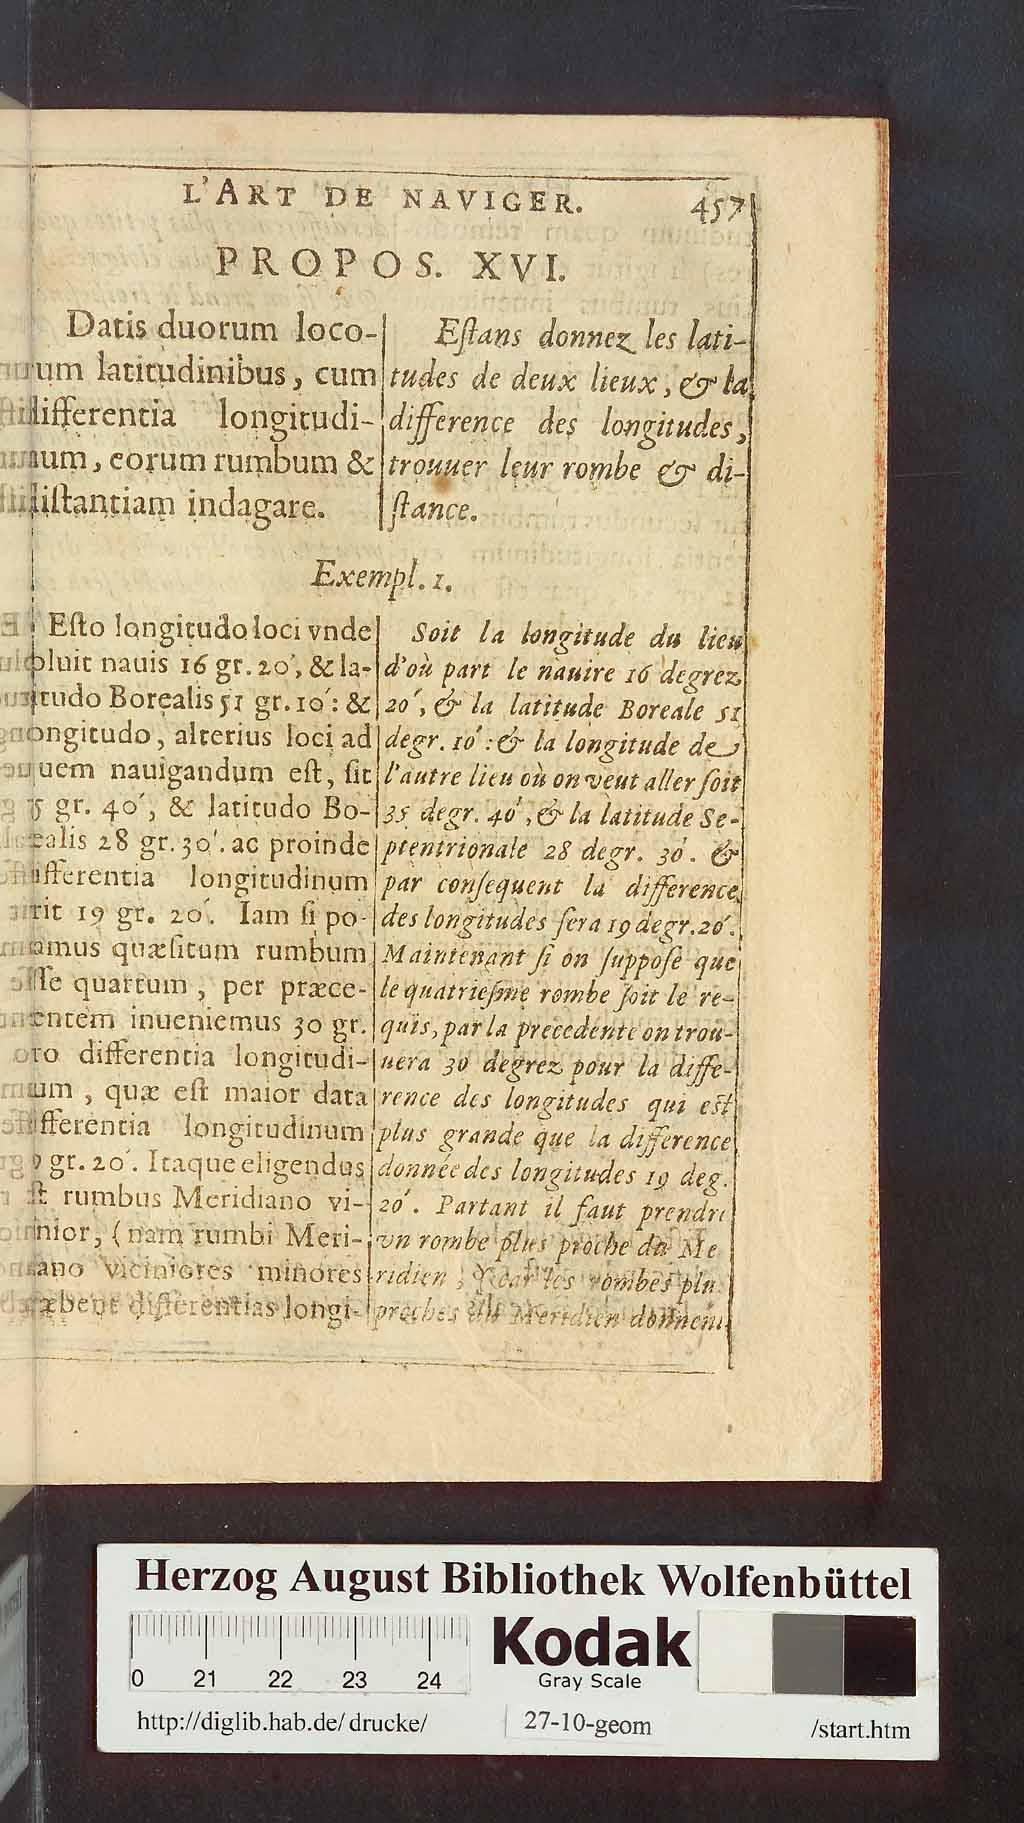 L'ART DE NAVIGER. 457
PROPOS. XVI.
Datis duorum loco-
rum latitudinibus, cum
differentia longitudi-
num, eorum rumbum &
distantiam indagare.
Eſtans donnez les lati-
tudes de deux lieux, & la
difference des longitudes,
trouuer leur rombe & di-
ſtance.
Exempl. 1.
Eſto longitudo loci vnde
ſoluit nauis 16 gr. 20', & la-
titudo Borealis 51 gr. 10': &
longitudo, alterius loci ad
quem nauigandum eſt, ſit
35 gr. 40', & latitudo Bo-
realis 28 gr. 30'. ac proinde
differentia longitudinum
erit 19 gr. 20'. Iam ſi po-
namus quæſitum rumbum
eſſe quartum, per præce-
dentem inueniemus 30 gr.
pro differentia longitudi-
num, quæ eſt maior data
differentia longitudinum
19 gr. 20'. Itaque eligendus
eſt rumbus Meridiano vi-
cinior, (nam rumbi Meri-
diano viciniores minores
præbent differentias longi-
Soit la longitude du lieu
d'où part le nauire 16 degrez
20', & la latitude Boreale 51
degr. 10': & la longitude de
l'autre lieu où on veut aller ſoit
35 degr. 40', & la latitude Se-
ptentrionale 28 degr. 30'. &
par conſequent la difference
des longitudes ſera 19 degr. 20'.
Maintenant ſi on ſuppoſe que
le quatrieſme rombe ſoit le re-
quis, par la precedente on trou-
uera 30 degrez pour la diffe-
rence des longitudes qui eſt
plus grande que la difference
donnée des longitudes 19 deg.
20'. Partant il faut prendre
vn rombe plus proche du Me
ridien, (car les rombes plu
proches du Meridien donnent
Herzog August Bibliothek Wolfenbüttel
0 21 22 23 24
Kodak
Gray Scale
http://diglib.hab.de/drucke/ 27-10-geom /start.htm